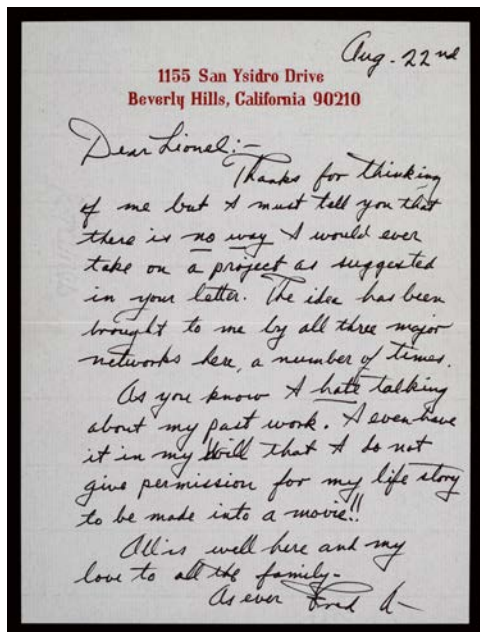 Aug. 22nd
1155 San Ysidro Drive
Beverly Hills, California 90210
Dear Lionel:-
Thanks for thinking
of me but I must tell you that
there is no way I would ever
take on a project as suggested
in your letter. The idea has been
brought to me by all three major
networks here, a number of times.
As you know I hate talking
about my past work. I even have
it in my Will that I do not
give permission for my life story
to be made into a movie!!
All is well here and my
love to all the family-
As ever Fred A-